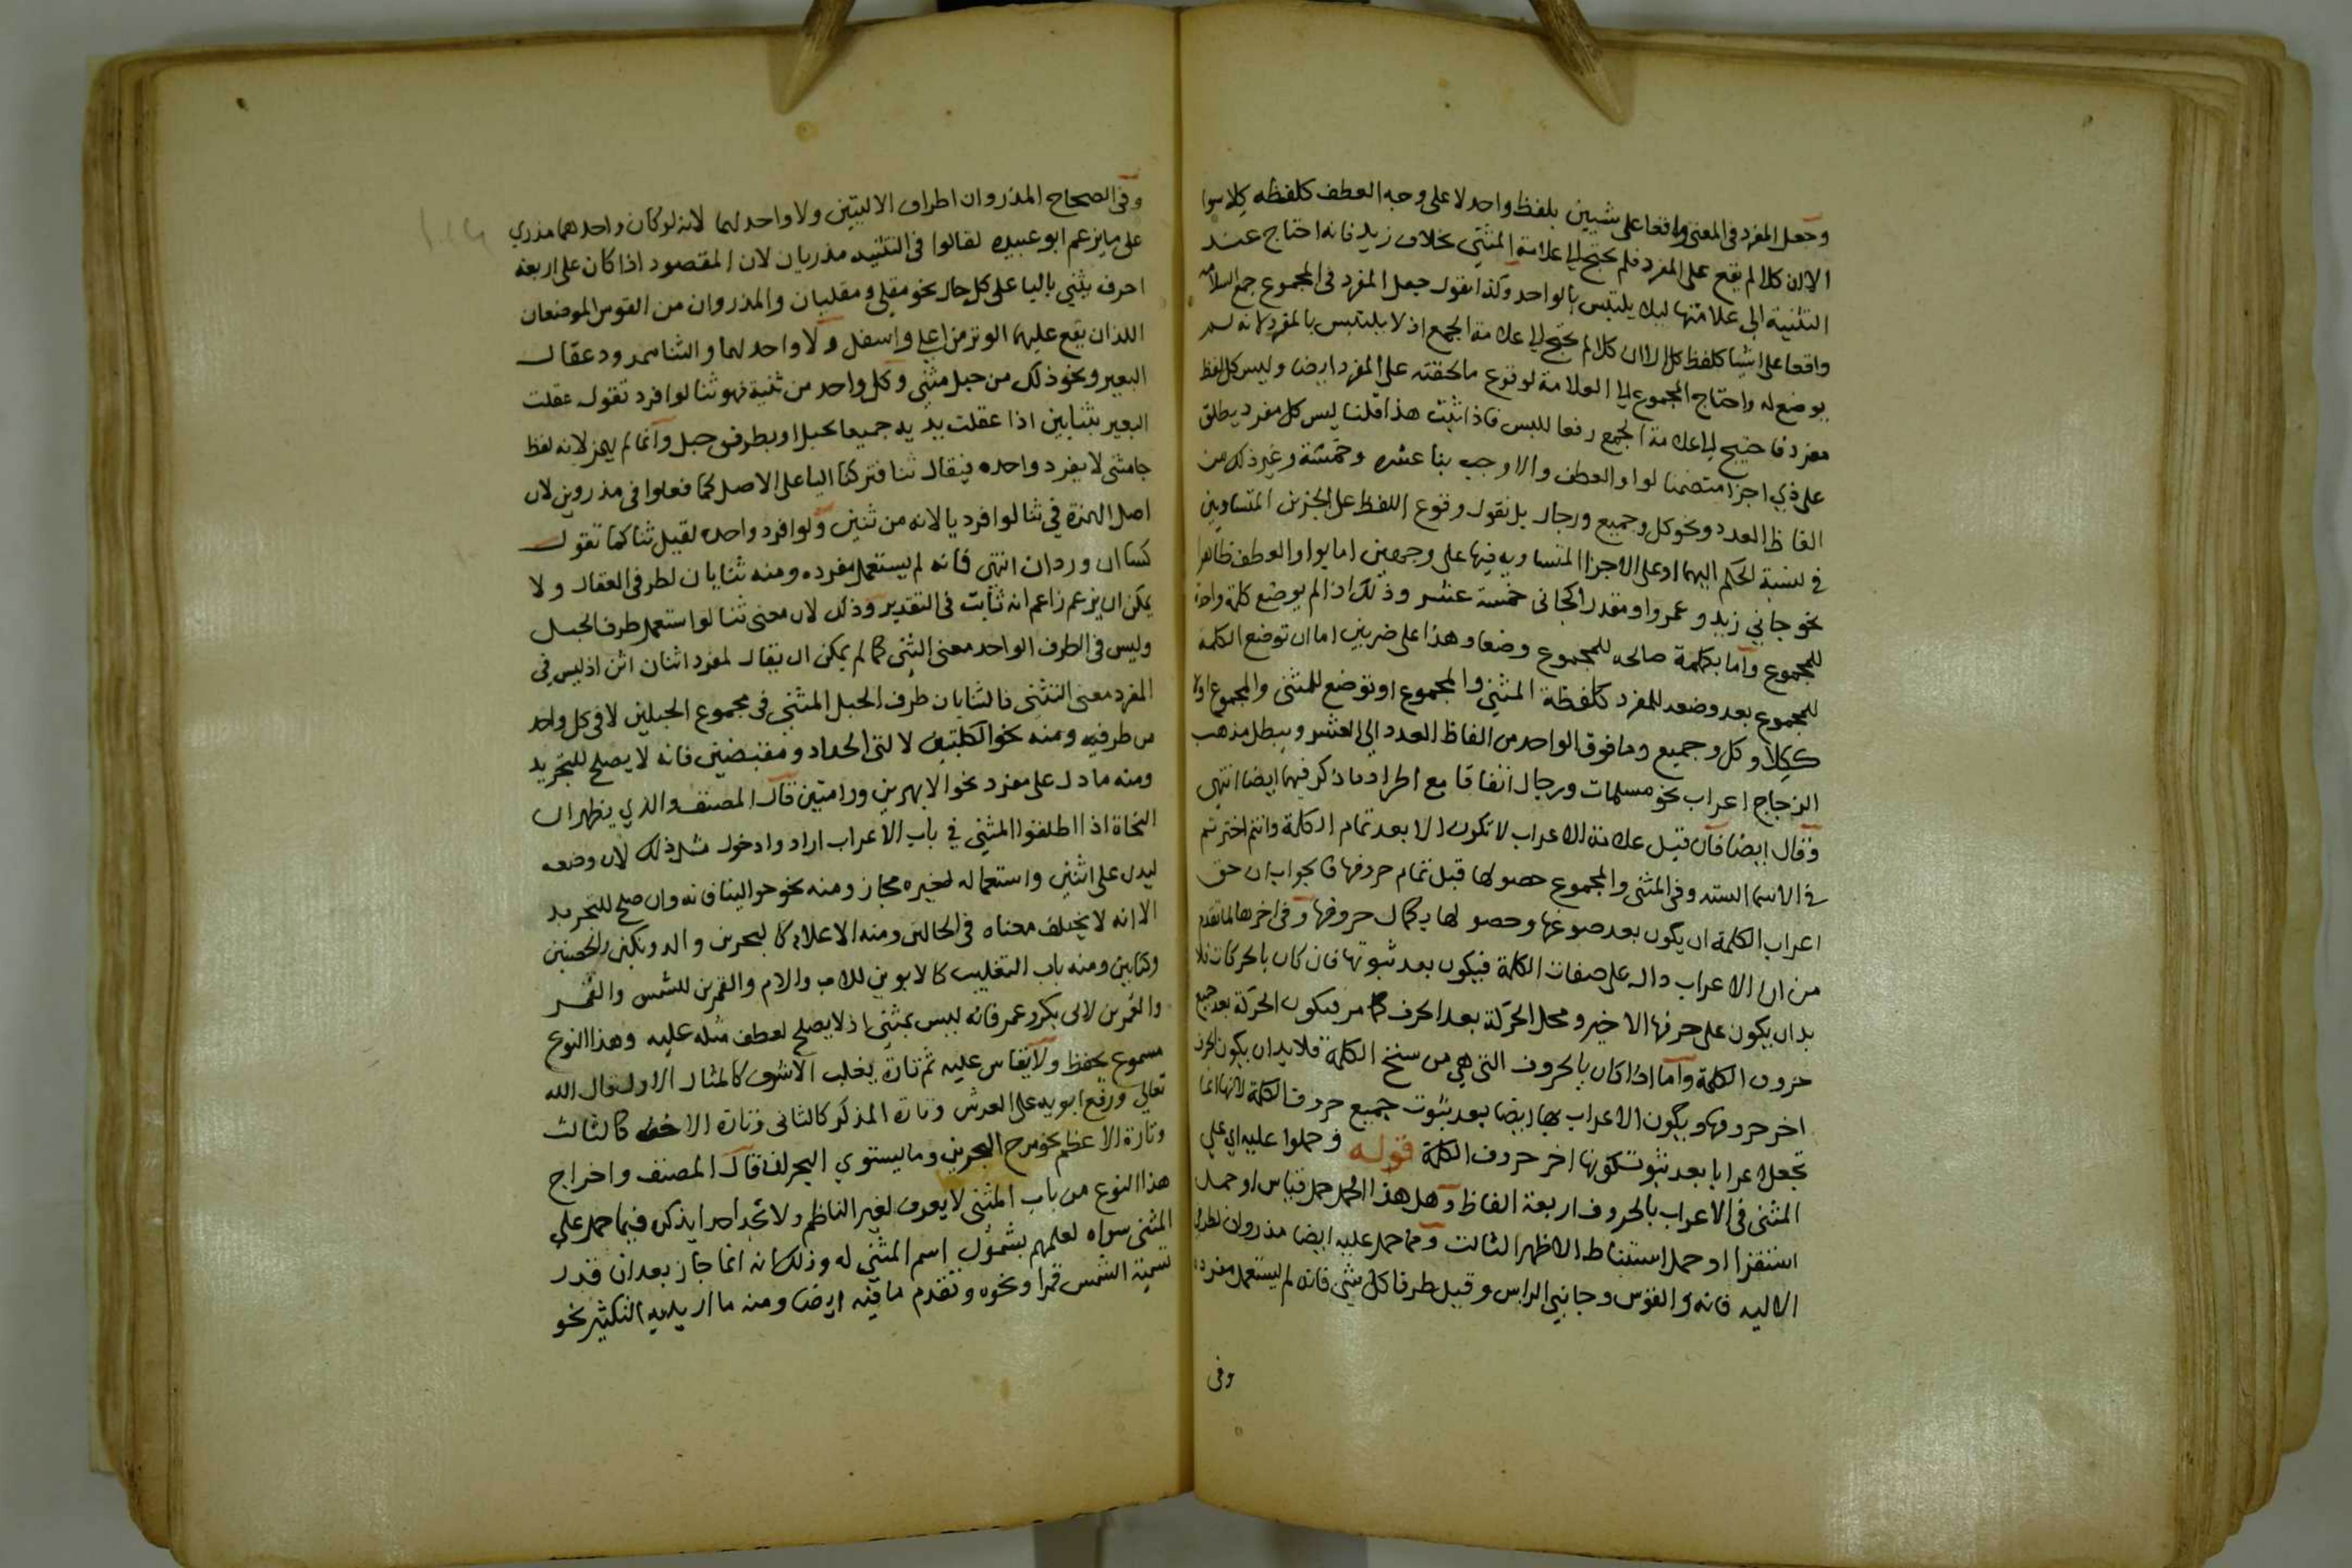 وجعل المفرد في المعنى واقعا على شيين بلفظ واحد لا على وجه العطف كلفظه كلا سوا
الا ان كلا لم يقع على المفرد فلم يحتج الى علامة المثنى بخلاف زيد فانه احتاج عند
التثنية الى علامتها ليلا يلتبس بالواحد وكذا نقول جعل المفرد في المجموع جمع السلامه
واقعا على اشيا كلفظ كل الا ان كلا لم يحتج الى علامة الجمع اذ لا يلتبس بالمفرد لانه لم
يوضع له واحتاج المجموع الى العلامة لوقوع ما لحقته على المفرد ايضا وليس كل لفظ
مفرد فاحتيج الى علامة الجمع رفعا للبس فاذا ثبت هذا قلنا ليس كل مفرد يطلق
على ذي اجزا متضمنا لواو العطف والا وجب بنا عشره وخمسة وغير ذلك من
الفاظ العدد ونحو كل وجميع ورجال بل نقول وقوع اللفظ على الجزين المتساويين
في نسبة الحكم اليهما او على الاجزا المتساويه فيها على وجهين اما بواو العطف ظاهرا
نحو جاني زيد وعمرو او مقدرا كجاني خمسة عشر وذلك اذا لم يوضع كلمة واحدة
للمجموع واما بكلمة صالحه للمجموع وضعا وهذا على ضربين اما ان توضع الكلمة
للمجموع بعد وضعه للمفرد كلفظة المثنى والمجموع او توضع للمثنى والمجموع اولا
ككلا وكل وجميع وما فوق الواحد من الفاظ العدد الى العشر ويبطل مذهب
الزجاج اعراب نحو مسلمات ورجال اتفاقا مع اطراد ما ذكر فيهما ايضا انتهى
وقال ايضا فان قيل علامة الاعراب لا تكون الا بعد تمام الكلمة وانتم اخترتم
في الاسما الستة وفي المثنى والمجموع حصولها قبل تمام حروفها فالجواب ان حق
اعراب الكلمة ان يكون بعد صوغها وحصولها بكمال حروفها وفي اخرها لما تقدم
من ان الاعراب دال على صفات الكلمة فيكون بعد ثبوتها فان كان بالحركات فلا
بد ان يكون على حرفها الاخير ومحل الحركة بعد الحرف كما مر فيكون الحركة بعد جميع
حروف الكلمة واما اذا كان بالحروف التي هي من سنخ الكلمة فلا بد ان يكون الحرف
اخر حروفها ويكون الاعراب بها ايضا بعد ثبوت جميع حروف الكلمة لانها انما
تجعل اعرابا بعد ثبوت كونها اخر حروف الكلمة قوله وحملوا عليه اي على
المثنى في الاعراب بالحروف اربعة الفاظ وهل هذا الحمل حمل قياس او حمل
استقرا او حمل استنباط الاظهر الثالث ومما حمل عليه ايضا مذروان لطرفي
الاليه فانه والقوس وجانبي الراس وقيل طرفا كل شي فانه لم يستعمل مفرده
وفي
وفي الصحاح المذروان اطراف الاليتين ولا واحد لهما لانه لو كان واحدهما مذري
على ما يزعم ابو عبيده لقالوا في التثنيه مذريان لان المقصود اذا كان على اربعة
احرف يثنى باليا على كل حال نحو مقلى ومقليان والمذروان من القوس الموضعان
اللذان يقع عليهما الوتر من اعلى واسفل ولا واحد لهما والثنا ممدود عقال
البعير ونحو ذلك من حبل مثنى وكل واحد من ثنيه فهو ثنا لو افرد تقول عقلت
البعير بثنايين اذا عقلت يديه جميعا بحبل او بطرفي حبل وانما لم يهمز لانه لفظ
جا مثنى لا يفرد واحده فيقال ثنا فتركنا اليا على الاصل كما فعلوا في مذروين لان
اصل الهمزة في ثنا لو افرد يا لانه من ثنيت ولو افرد واحده لقيل ثنا كما تقول
كساان وردان انتهى فانه لم يستعمل مفرده ومنه ثنايان لطرفي العقال ولا
يمكن ان يزعم زاعم انه ثابت في التقدير وذلك لان معنى ثنا لو استعمل طرف الحبل
وليس في الطرف الواحد معنى الثني كما لم يمكن ان يقال لمفرد اثنان اثن اذ ليس في
المفرد معنى التثني فالثنايان طرف الحبل المثنى في مجموع الحبلين لا في كل واحد
من طرفيه ومنه نحو الكلبتين لالتي الحداد ومقبضين فانه لا يصلح للتجريد
ومنه ما دل على مفرد نحو الابهرين ورامتين قال المصنف والذي يظهر ان
النحاة اذا اطلقوا المثنى في باب الاعراب ارادوا دخول مثل ذلك لان وضعه
ليدل على اثنين واستعماله لغيره مجاز ومنه نحو حوالينا فانه وان صلح للتجريد
الا انه لا يختلف معناه في الحالين ومنه الاعلام كالبحرين والدونكين والحصنين
وكتابين ومنه باب التغليب كالابوين للاب والام والقمرين للشمس والقمر
والعمرين لابي بكر وعمر فانه ليس بمثنى اذ لا يصلح لعطف مثله عليه وهذا النوع
مسموع يحفظ ولا يقاس عليه ثم تارة يغلب الاشرف كالمثال الاول قال الله
تعالى ورفع ابويه على العرش وتارة المذكر كالثاني وتارة الاخف كالثالث
وتارة الاعظم نحو مرج البحرين وما يستوي البحران قال المصنف واخراج
هذا النوع من باب المثنى لا يعرف لغير الناظم ولا تجد احدا يذكره فيما حمل على
المثنى سواه لعلمهم بشمول اسم المثنى له وذلك انه انما جاز بعد ان قدر
تسمية الشمس قمرا ونحوه وتقدم ما فيه ايضا ومنه ما اريد به التكثير نحو